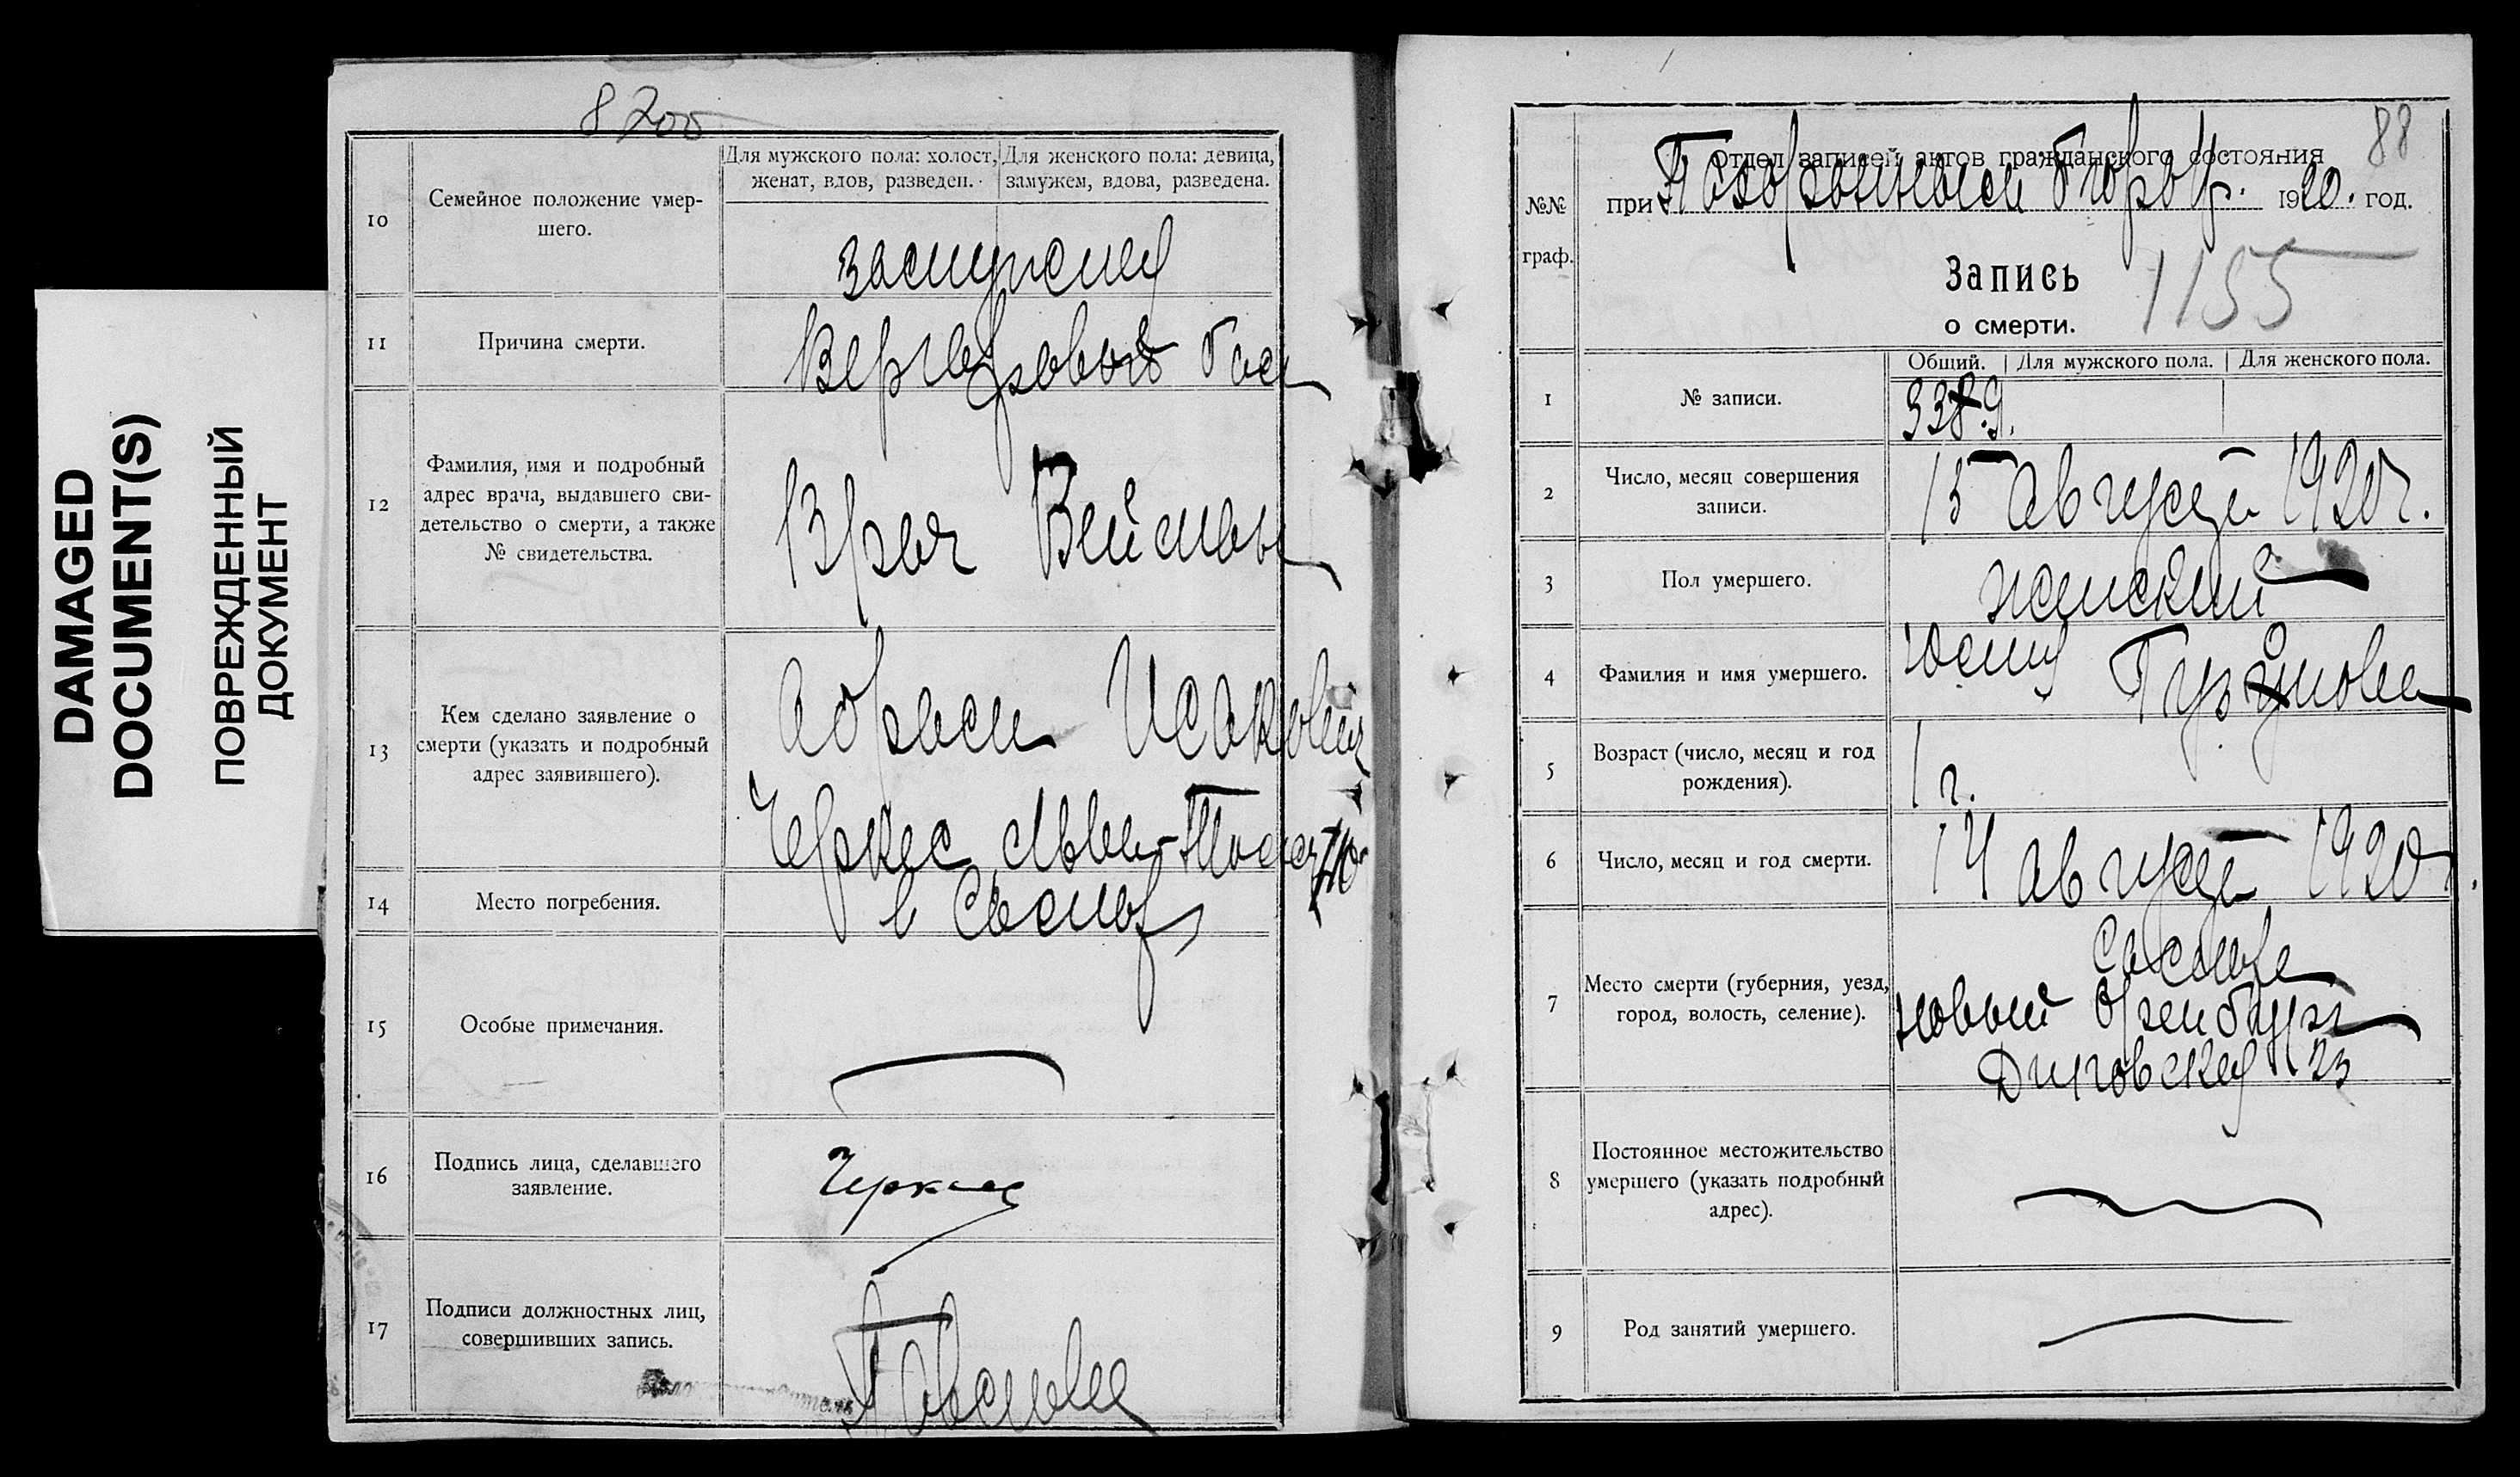 DAMAGED
DOCUMENT(S)
ПОВРЕЖДЕННЫЙ
ДОКУМЕНТ
8200
Для мужского пола: холост, женат, вдов, разведен.
Для женского пола: девица, замужем, вдова, разведена.
10
Семейное положение умер-
шего.
замужняя
11
Причина смерти.
12
Фамилия, имя и подробный
адрес врача, выдавшего сви-
детельство о смерти, а также
№ свидетельства.
Врач Вейсман
13
Кем сделано заявление о
смерти (указать и подробный
адрес заявившего).
Абрам Исакович
Черкес
14
Место погребения.
в
15
Особые примечания.
16
Подпись лица, сделавшего
заявление.
Черкес
17
Подписи должностных лиц,
совершивших запись.
88
№№
граф.
Отдел записей актов гражданского состояния
при Похоронным бюро 1920. год.
Запись
о смерти.
1155
Общий. Для мужского пола. Для женского пола.
1
№ записи.
3389.
2
Число, месяц совершения
записи.
15 августа 1920 г.
3
Пол умершего.
женский
4
Фамилия и имя умершего.
5
Возраст (число, месяц и год
рождения).
1 г.
6
Число, месяц и год смерти.
14 августа 1920 г.
7
Место смерти (губерния, уезд,
город, волость, селение).
новый Оренбург
23
8
Постоянное местожительство
умершего (указать подробный
адрес).
9
Род занятий умершего.